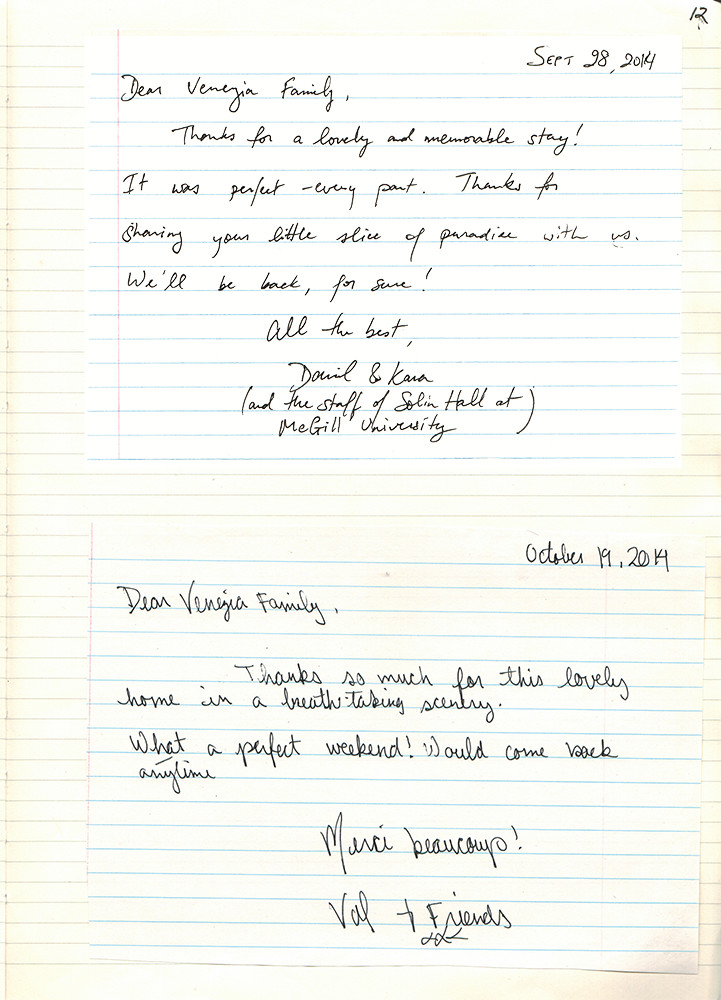 12
Sept 28, 2014
Dear Venezia Family,
Thanks for a lovely and memorable stay!
It was perfect - every part. Thanks for
sharing your little slice of paradise with us.
We'll be back, for sure!
All the best,
David & Kara
(and the staff of Solin Hall at
McGill University)
October 19, 2014
Dear Venezia Family,
Thanks so much for this lovely
home in a breath-taking scenery.
What a perfect weekend! Would come back
anytime
Merci beaucoup!
Val + Friends